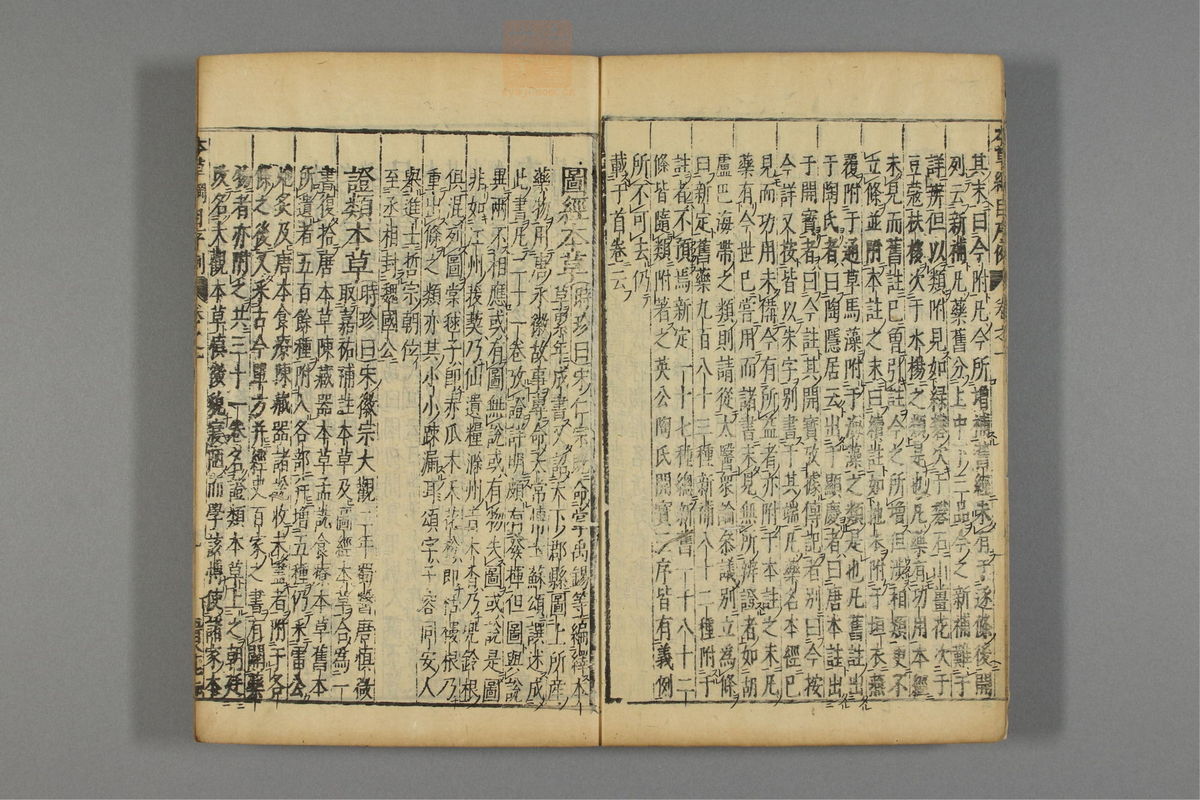 本草綱目序例　卷之一
其末曰今附凡今所增補舊經未有于逐條後開
列云新補凡藥舊分上中下三品今之新補難于
詳辨但以類附見如綠礬次于礬石山薑花次于
豆蔻扶栘次于水楊之類是也凡藥有功用本經
未見而舊註已曾引註今之所增但涉相類更不
立條並附本註之末曰續註如地衣附于垣衣燕
覆附于通草馬藻附于海藻之類是也凡舊註出
于陶氏者曰陶隱居云出于顯慶者曰唐本註出
于開寶者曰今註其開寶攷據傳記者別曰今按
今詳又按皆以朱字別書于其端凡藥名本經已
見而功用未備今有所益者亦附于本註之末凡
藥有今世已嘗用而諸書未見無所辨證者如胡
盧巴海帶之類則請從太醫衆論參議別立爲條
曰新定舊藥九百八十三種新補八十二種附于
註者不預焉新定一十七種總新舊一千八十二
條皆隨類附著之英公陶氏開寶三序皆有義例
所不可去仍載于首卷云
圖經本草時珍曰宋仁宗旣命掌禹錫等編繹本
草累年成書又詔天下郡縣圖上所産
藥物用唐永徽故事專命太常博士蘇頌譔述成
此書凡二十一卷攷證詳明頗有發揮但圖與說
異兩不相應或有圖無說或有物失圖或說是圖
非如江州菝葜乃仙遺糧滁州青木香乃兜鈴根
俱混列圖棠毬子卽赤瓜木天花粉卽栝樓根乃
重出條之類亦其小小疎漏耳頌字子容同安人
舉進士哲宗朝位
至丞相封魏國公
證類本草時珍曰宋徽宗大觀二年蜀醫唐愼微
取嘉祐補註本草及圖經本草合爲一
書復拾唐本草陳藏器本草孟詵食療本草舊本
所遺者五百餘種附入各部幷增五種仍采雷公
炮炙及唐本食療陳藏器諸說收未盡者附于各
條之後又采古今單方幷經史百家之書有關藥
物者亦附之共三十一卷名證類本草上之朝廷
改名大觀本草愼微貌寢陋而學該博使諸家本
本草綱目序例　卷之一